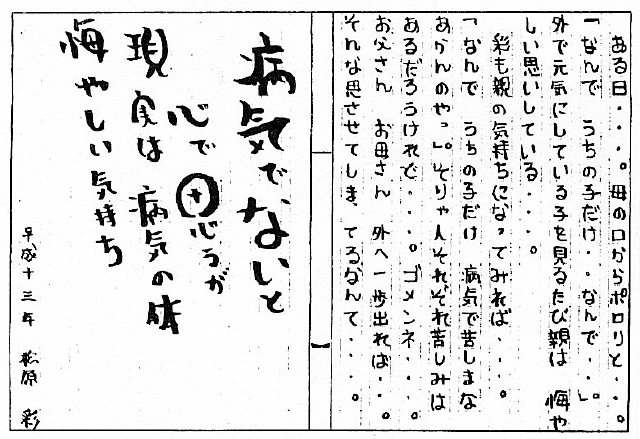 ある日・・・。母の口からポロリと・・・。
「なんで　うちの子だけ・・なんで・・・。」
外で元気にしている子を見るたび親は　悔や
しい思いしている・・・・。
彩も親の気持ちになってみれば・・・・。
「なんで　うちの子だけ　病気で苦しまな
あかんのやっ」。そりゃ人それぞれ苦しみは
あるだろうけれど・・・・。ゴメンネ・・・・。
お父さん　お母さん　外へ一歩出れば・・。
そんな思させてしまってるなんて・・・・。
病気でないと
心で思うが
現実は病気の体
悔やしい気持ち
平成十三年　松原　彩